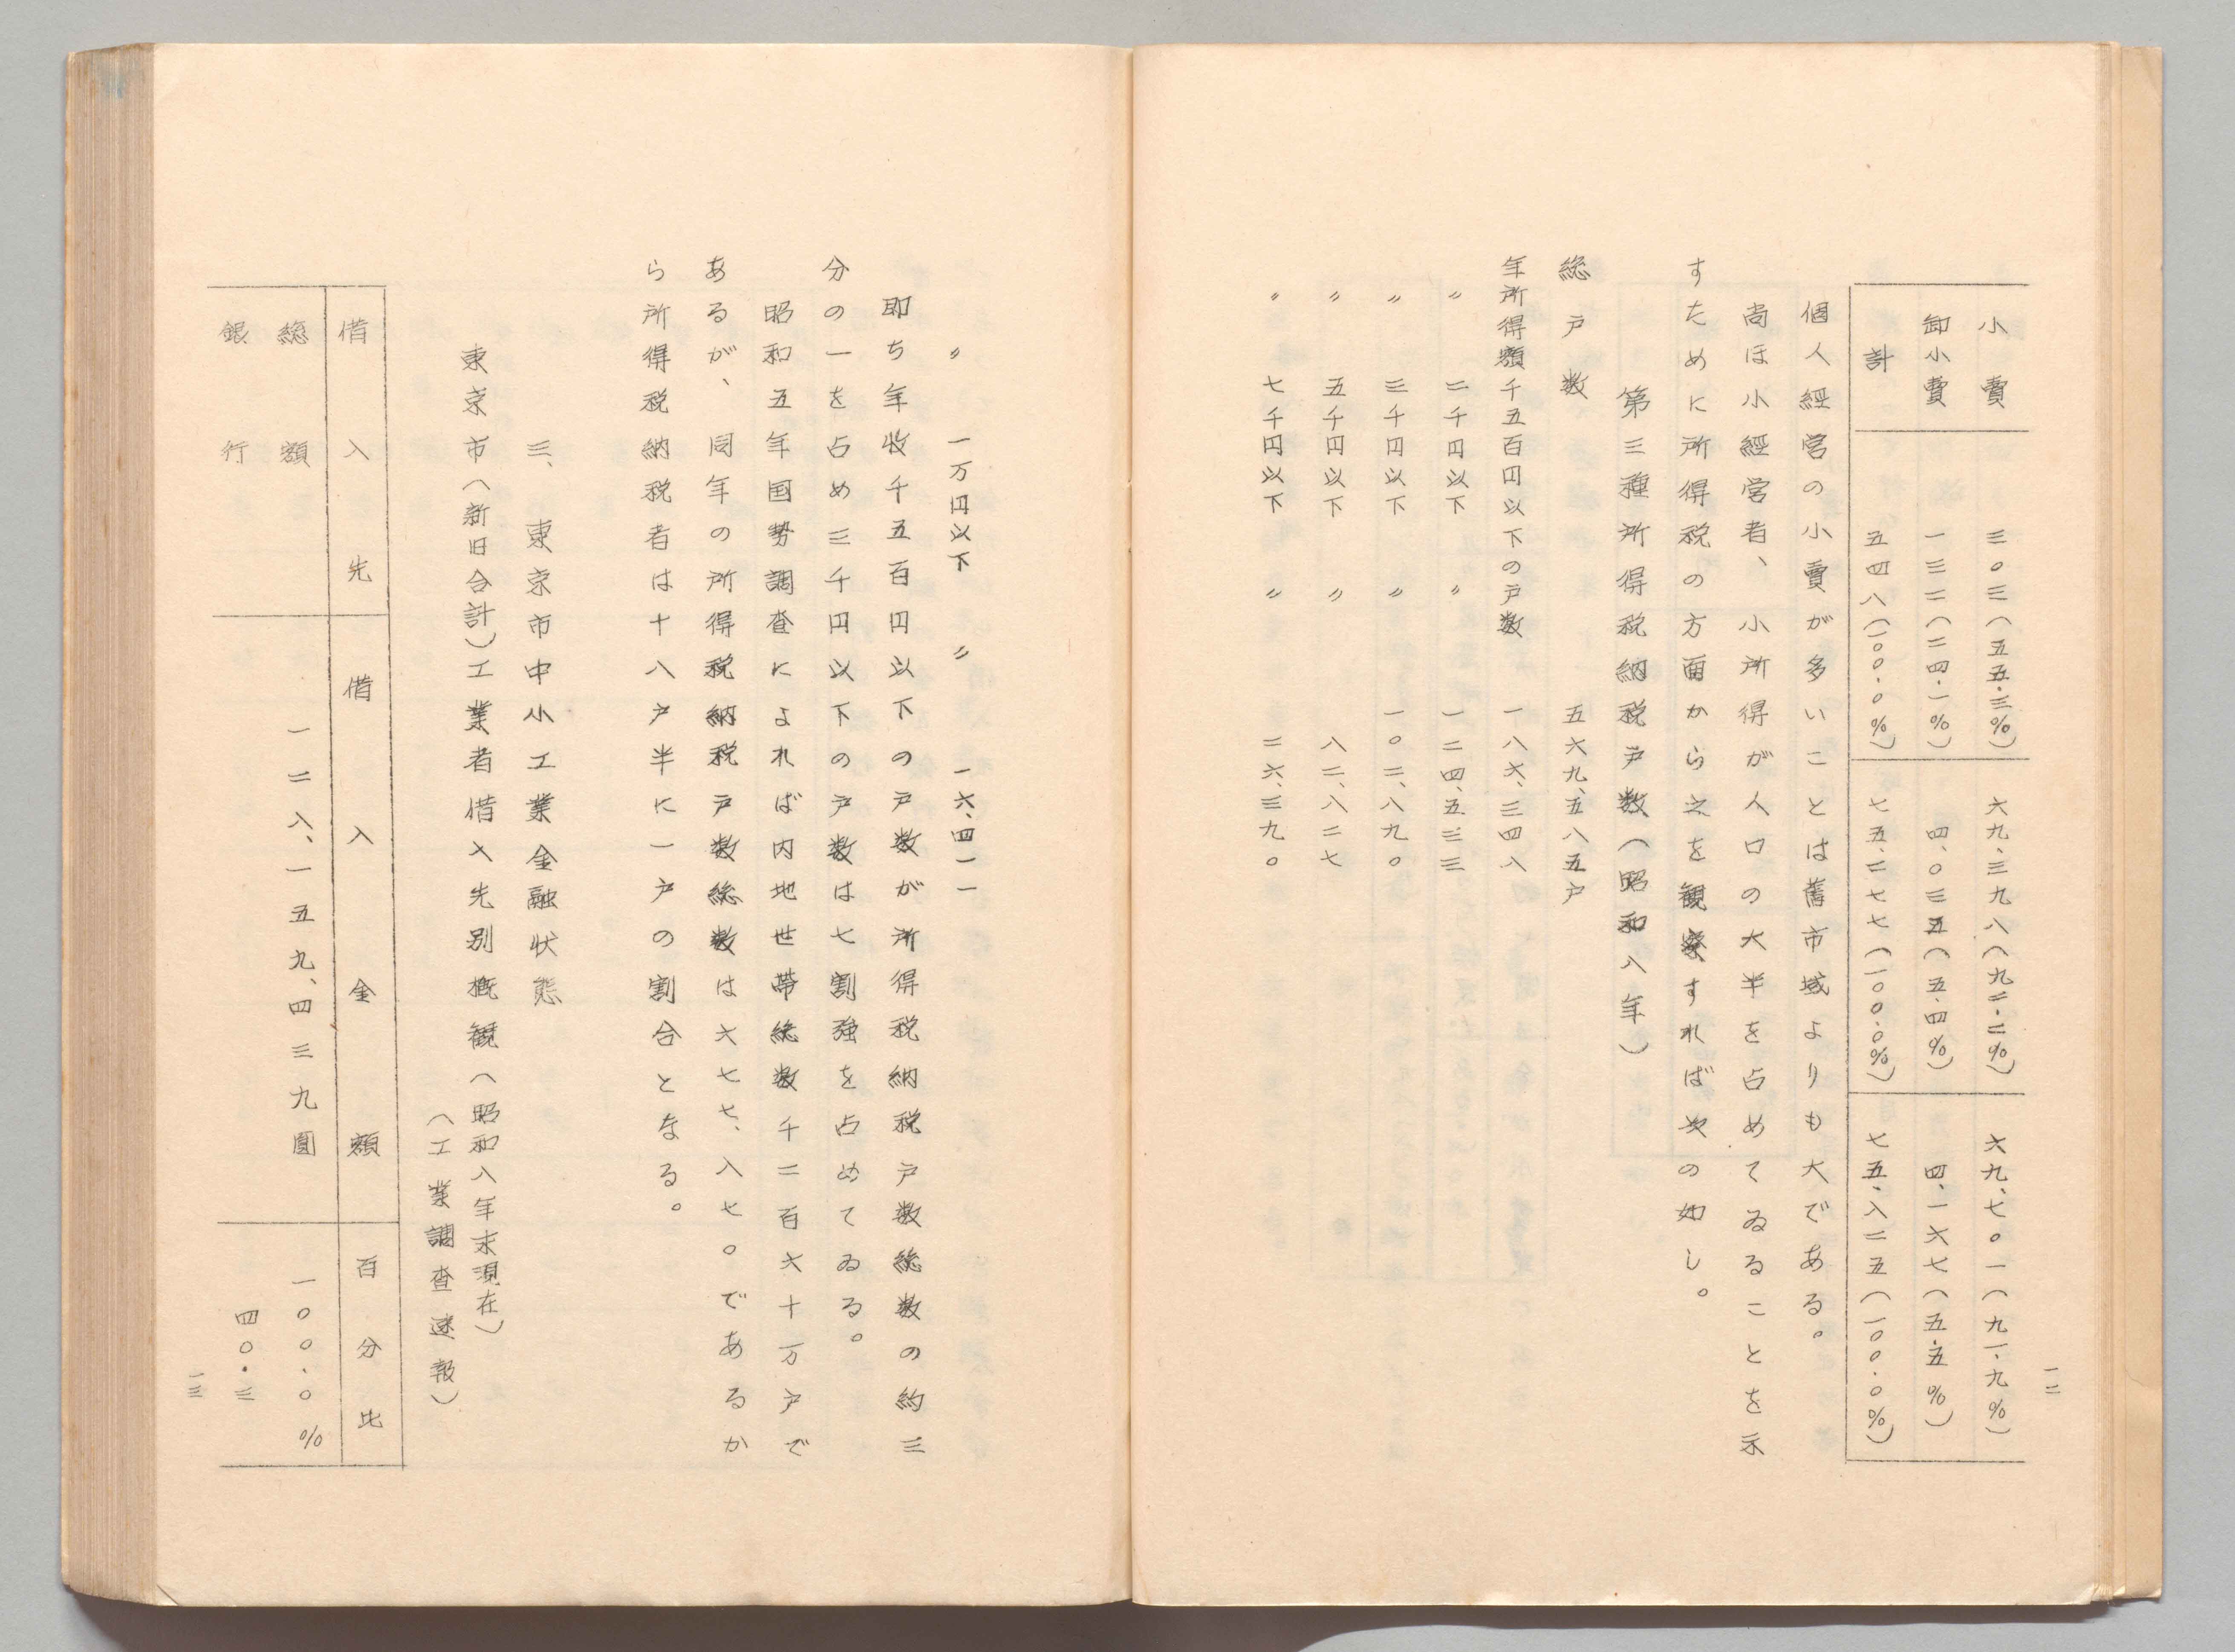 小賣 三〇三(五五・三%) 六九、三九八(九二・二%) 六九、七〇一(九一・九%)
卸小賣 一三二(二四・一%) 四、〇三五(五・四%) 四、一六七(五・五%)
計 五四八(一〇〇・〇%) 七五、二七七(一〇〇・〇%) 七五、八二五(一〇〇・〇%)
個人經営の小賣が多いことは舊市域よりも大である。
尚ほ小經営者、小所得が人口の大半を占めてゐることを示
すために所得税の方面から之を観察すれば次の如し。
第三種所得税納税戸数(昭和八年)
総戸数 五六九、五八五戸
年所得額千五百円以下の戸数 一八六、三四八
〃 二千円以下 〃 一二四、五三三
〃 三千円以下 〃 一〇二、八九〇
〃 五千円以下 〃 八二、八二七
〃 七千円以下 〃 二六、三九〇
一二
〃 一万円以下 〃 一六、四一一
即ち年收千五百円以下の戸数が所得税納税戸数総数の約三
分の一を占め三千円以下の戸数は七割強を占めてゐる。
昭和五年国勢調査によれば内地世帯総数千二百六十万戸で
あるが、同年の所得税納税戸数総数は六七七、八七〇であるか
ら所得税納税者は十八戸半に一戸の割合となる。
三、東京市中小工業金融状態
東京市(新旧合計)工業者借入先別概観(昭和八年末現在)
(工業調査速報)
借入先 借入金額 百分比
総額 一二八、一五九、四三九圓 一〇〇・〇%
銀行 四〇・三
一三